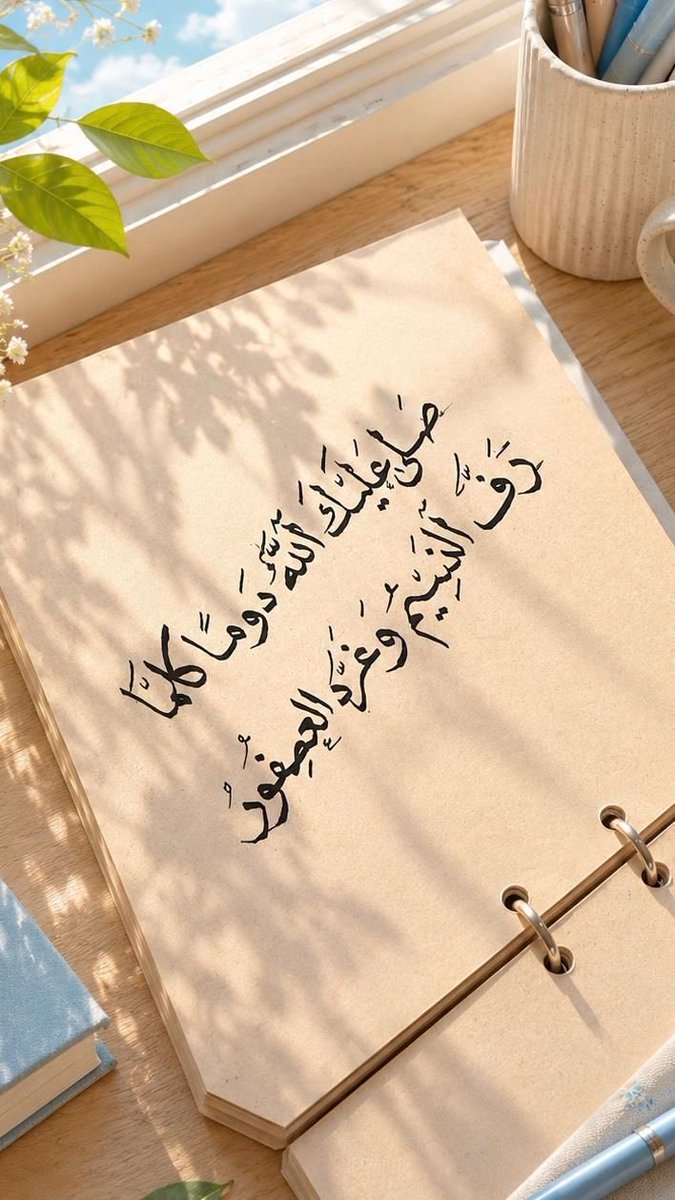 صَلَّى عَلَيْكَ ٱللَّهُ دَوماً كلمَّا
رَفَّ ٱلنَسِيْمُ وَغَرَّدَ العصفورُ